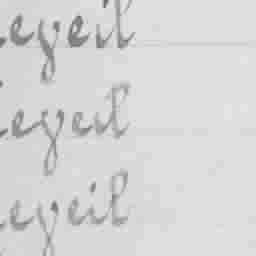 eyeil
eyeil
eyeil